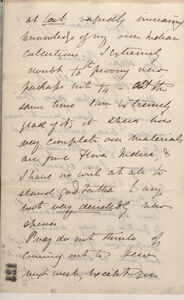 at last rapidly increasing
knowledge of my own Indian
collections. I extremely
doubt to proving new
perhaps not ¼. At the
same time I am extremely
glad of it; it shews how
very complete our materials
are for a Flora Indica &
I have no work at all to
stand godfather to any
but very decidedly new
species.
Pray do not think of
coming out to Kew
next week, except you